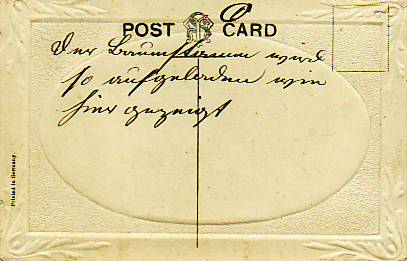 POST CARD
Der Baumstamm wird
so aufgeladen wie
hier gezeigt
Printed in Germany.